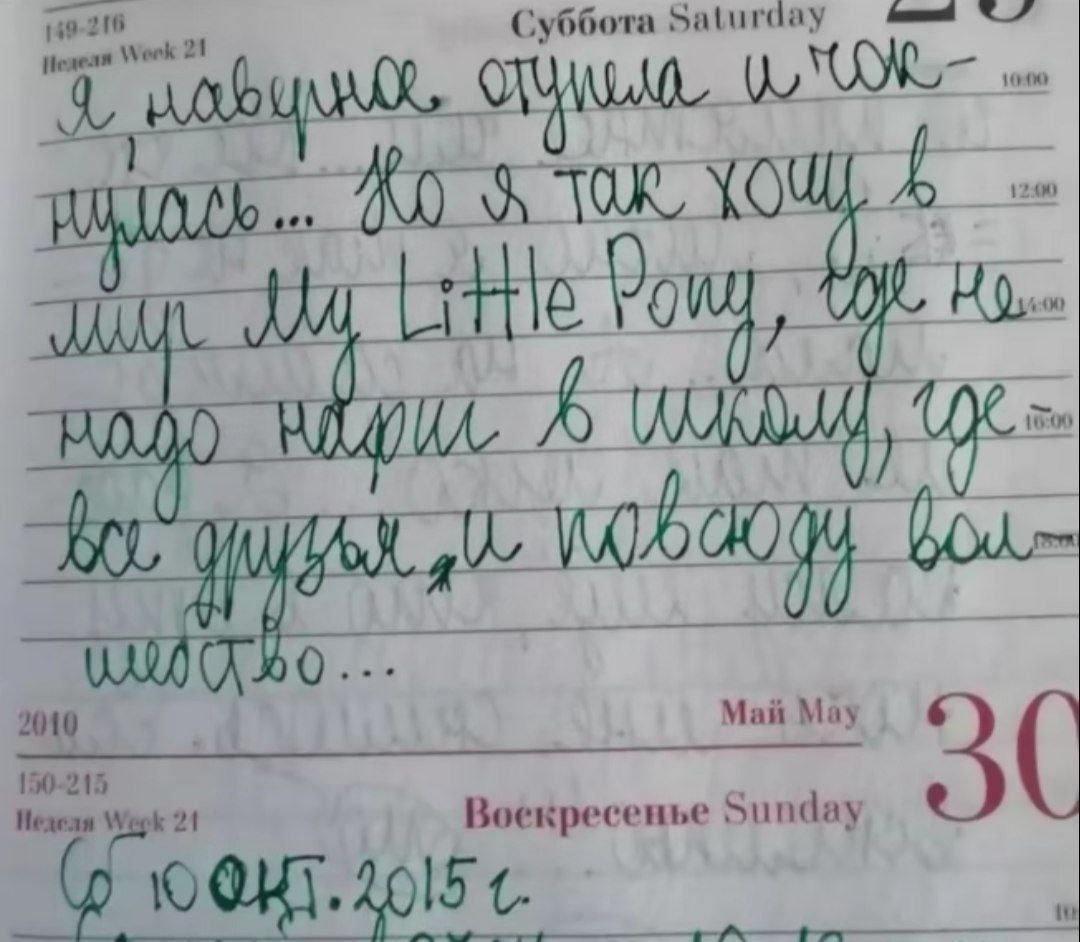 149-216
Суббота Saturday
Неделя Week 21
Я наверное отупела и чок-
10:00
нулась... Но я так хочу в
12:00
мир My Little Pony, где не
14:00
надо нафиг в школу, где
16:00
все друзья, и повсюду вол-
18:00
шебство...
2010
Май May
30
150-215
Неделя Week 21
Воскресенье Sunday
Сб 10 окт. 2015 г.